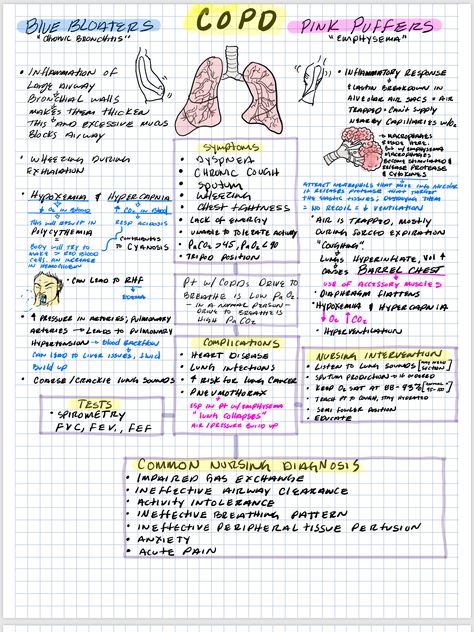 BLUE BLOATERS
"CHRONIC BRONCHITIS"
COPD
PINK PUFFERS
"EMPHYSEMA"
• INFLAMMATION OF
LARGE AIRWAY
BRONCHIAL WALLS
MAKES THEM THICKEN
THIS AND EXCESSIVE MUCUS
BLOCKS AIRWAY
• WHEEZING DURING
EXHALATION
• HYPOXEMIA & HYPERCAPNIA
↓ O2 IN BLOOD
↑ CO2 IN BLOOD
THIS WILL RESULT IN
POLYCYTHEMIA
RESP ACIDOSIS
BODY WILL TRY TO
MAKE > RED BLOOD
CELLS, AN INCREASE
IN HEMOGLOBIN
CONTRIBUTES
TO CYANOSIS
• CAN LEAD TO RHF
EDEMA
• ↑ PRESSURE IN ARTERIES; PULMONARY
ARTERIES → LEADS TO PULMONARY
HYPERTENSION → blood BACKFLOW
CAN LEAD TO LIVER ISSUES, fluid
build UP
• COARSE/CRACKLE LUNG SOUNDS
SYMPTOMS
• DYSPNEA
• CHRONIC COUGH
• SPUTUM
• WHEEZING
• CHEST TIGHTNESS
• LACK OF ENERGY
• UNABLE TO TOLERATE ACTIVITY
• TRIPOD POSITION
PT W/ COPD: DRIVE TO
BREATHE IS LOW PaO2.
IN A NORMAL PERSON -
DRIVE TO BREATHE IS
HIGH PaCO2
• INFLAMMATORY RESPONSE
ELASTIN BREAKDOWN IN
ALVEOLAR AIR SACS & AIR
TRAPPED = CAN'T SUPPLY
NEARBY CAPILLARIES W/O2
→ MACROPHAGES
RESIDE HERE.
MACROPHAGES
RELEASE PROTEASE
& CYTOKINES
= NO RECOIL = ↓ VENTILATION
• AIR IS TRAPPED, MOSTLY
DURING FORCED EXPIRATION
"COUGHING"
LUNGS HYPERINFLATE, VOL ↑
CAUSES BARREL CHEST
USE OF ACCESSORY MUSCLES
• DIAPHRAGM FLATTENS
• HYPOXEMIA & HYPERCAPNIA
↓ O2 ↑ CO2
• HYPERVENTILATION
COMPLICATIONS
• HEART DISEASE
• LUNG INFECTIONS
• ↑ RISK FOR LUNG CANCER
• PNEUMOTHORAX
ESP IN PT W/ EMPHYSEMA
"LUNG COLLAPSES"
AIR/PRESSURE BUILD UP
NURSING INTERVENTION
• LISTEN TO LUNG SOUNDS [MAY NEED SUCTION]
• SPUTUM PRODUCTION → IF ORDERED
• KEEP O2 SAT AT 88-93% [NORMAL 95-100]
• TEACH PT TO COUGH, STAY HYDRATED
• SEMI FOWLER POSITION
• EDUCATE
TESTS
• SPIROMETRY
FVC, FEV1, FEF
COMMON NURSING DIAGNOSIS
• IMPAIRED GAS EXCHANGE
• INEFFECTIVE AIRWAY CLEARANCE
• ACTIVITY INTOLERANCE
• INEFFECTIVE BREATHING PATTERN
• INEFFECTIVE PERIPHERAL TISSUE PERFUSION
• ANXIETY
• ACUTE PAIN